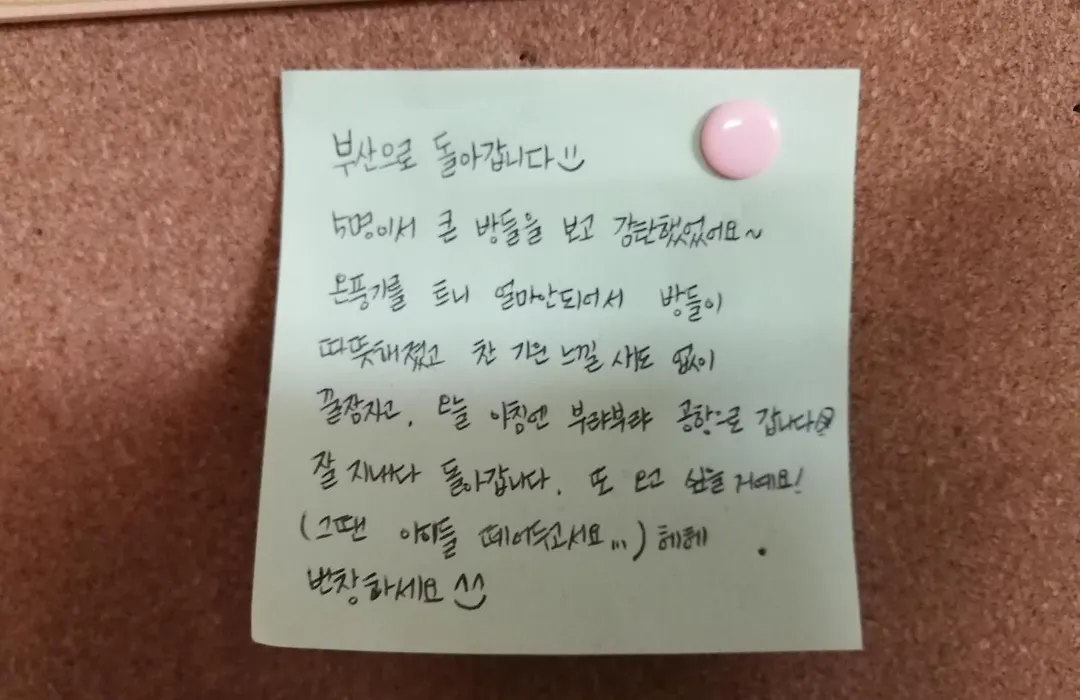 부산으로 돌아갑니다
5명이서 큰 방들을 보고 감탄했었어요~
온풍기를 트니 얼마안되어서 방들이
따뜻해졌고 찬 기운 느낄 새도 없이
꿀잠자고, 오늘 아침엔 부랴부랴 공항으로 갑니다
잘 지내다 돌아갑니다. 또 오고 싶을거예요!
(그땐 아이들 떼어두고서요...) 헤헤
번창하세요 ^^